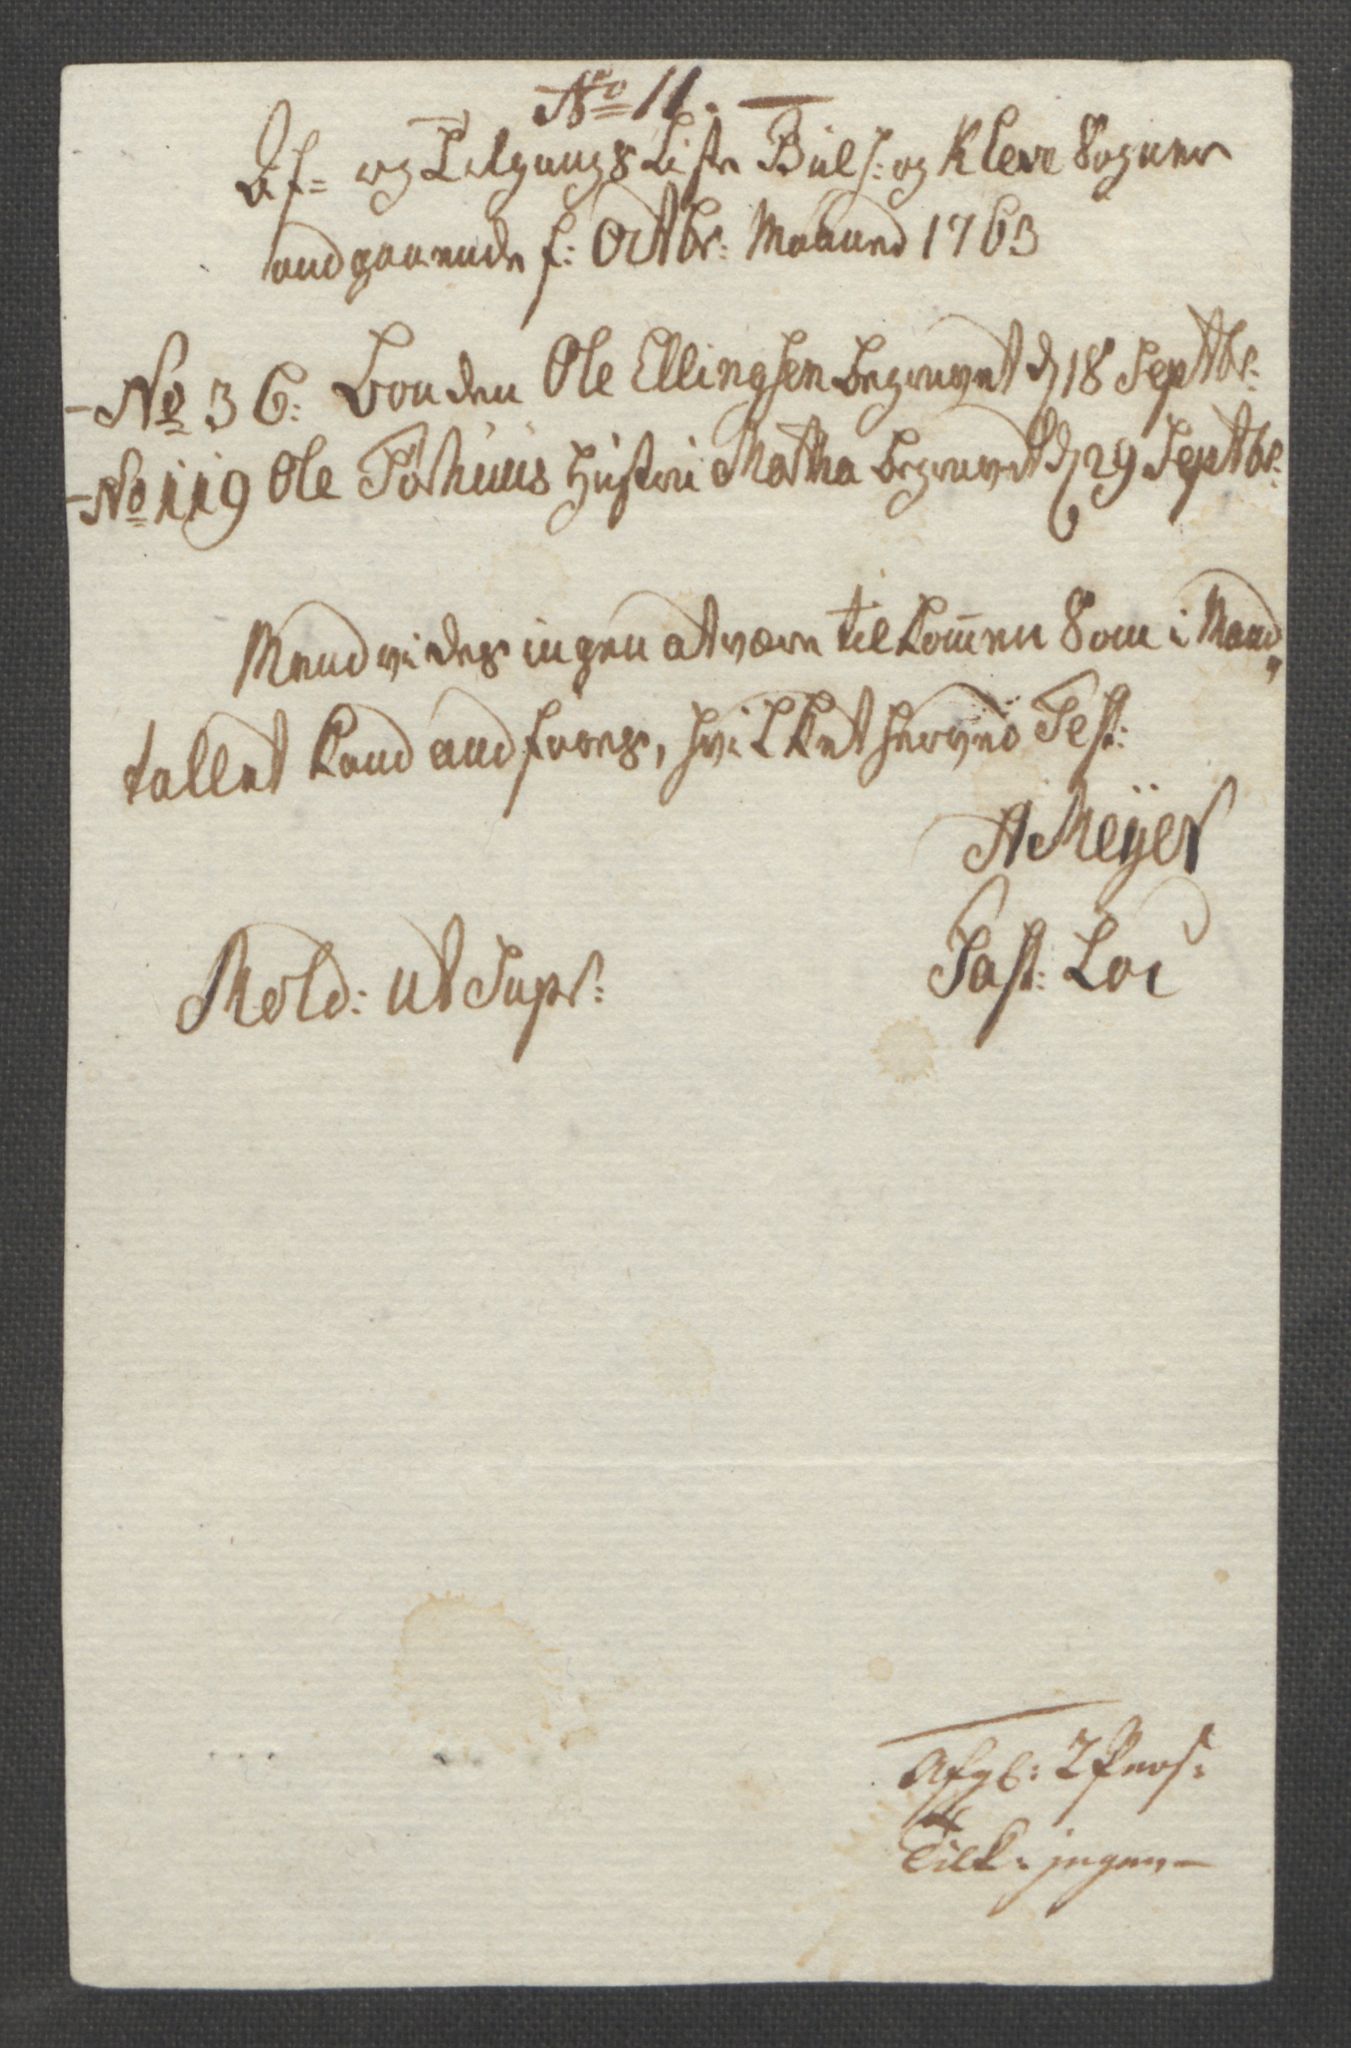 No 11.
Af= og Tilgangs Liste Bols: og Kleve Sogner
andgaaende f: Octbr: Maaned 1763
No 36. Bonden Ole Ellingsen begravet d 18 Septbr:
No 119 Ole Hustrue Martha begravet d 29 Septbr:
Mend vides ingen at være tilkom̅en som i Mand
tallet kand andføres, hvilket herved Test:
A Meÿer
Past: Loc
Mold: ut Supr:
Afg: 2 Pers:
Tilk: ingen